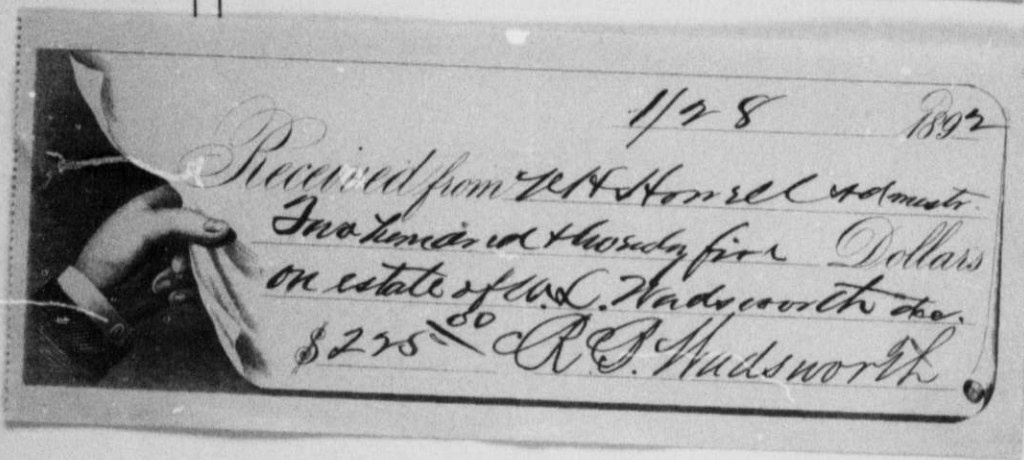 1/28 1892
Received from Howell Admnstr.
Two hundred & twenty five Dollars
on estate of W. L. Wadsworth dec.
$225.00 R. P. Wadsworth